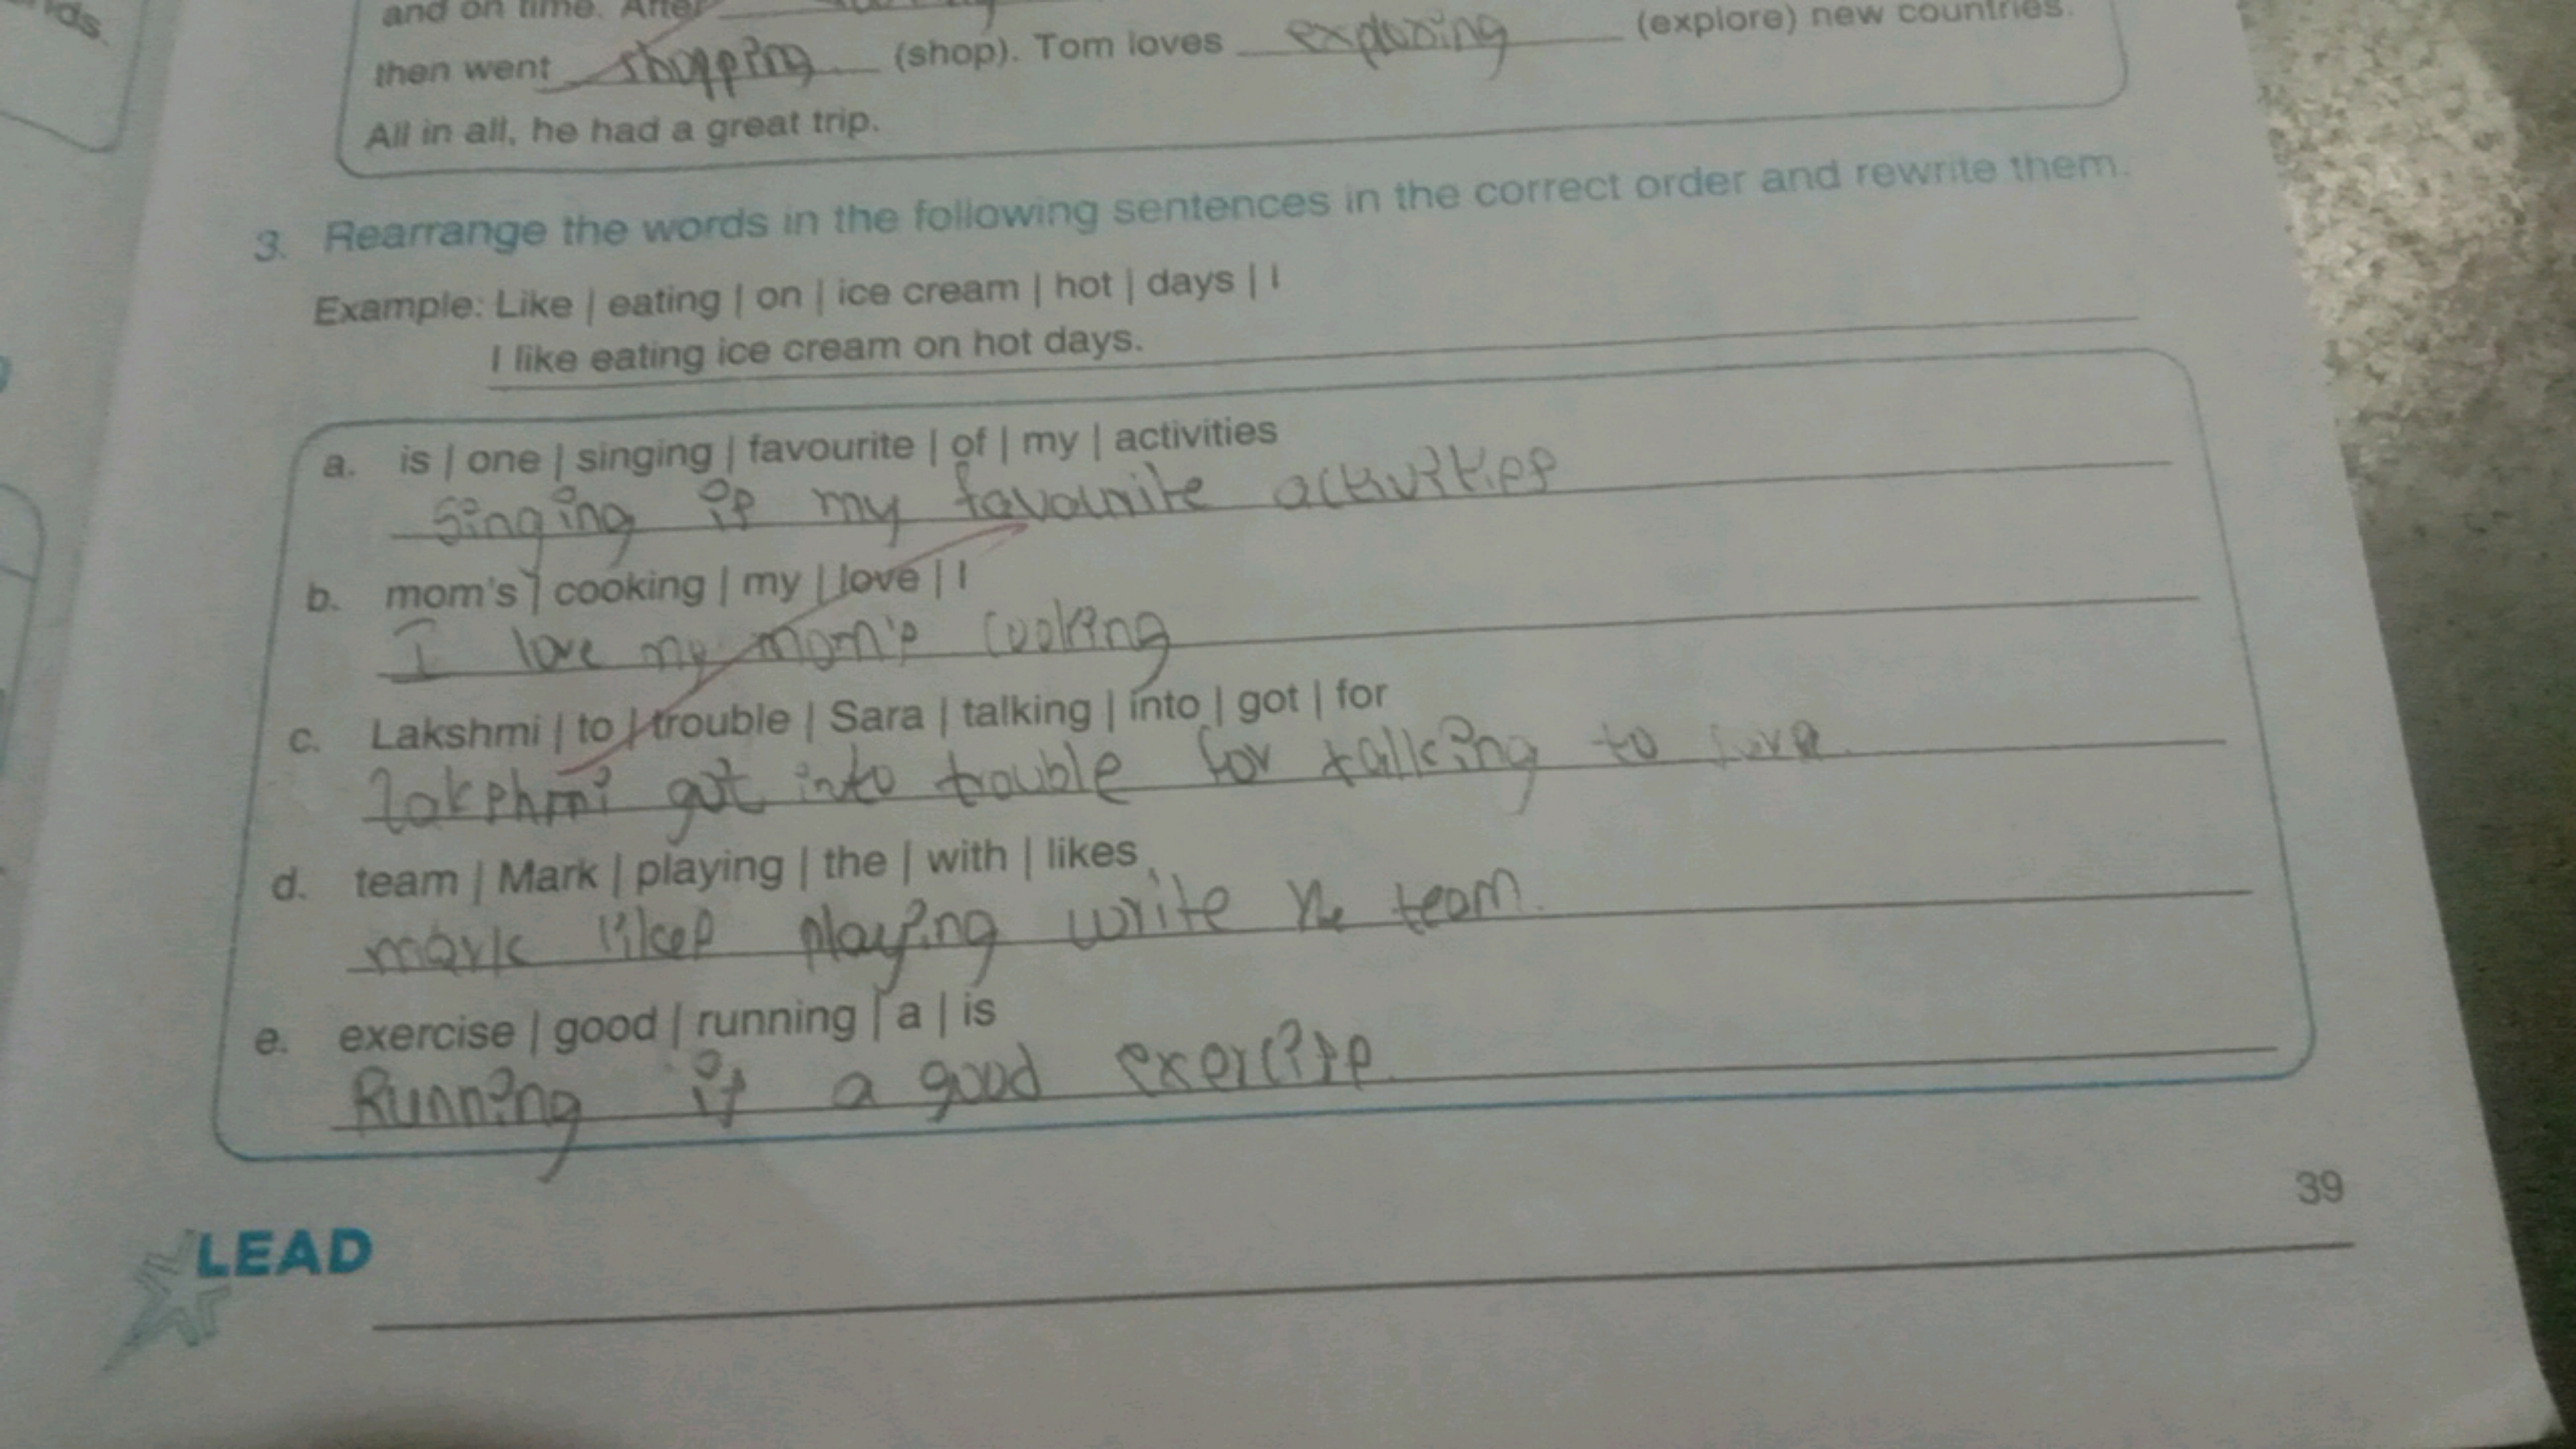 ds.
and on time. After
then went shopping (shop). Tom loves exploring (explore) new countries.
All in all, he had a great trip.
3. Rearrange the words in the following sentences in the correct order and rewrite them.
Example: Like | eating | on | ice cream | hot | days | I
I like eating ice cream on hot days.
a. is | one | singing | favourite | of | my | activities
Singing is my favourite activities
b. mom's | cooking | my | love | I
I love my mom's cooking
c. Lakshmi | to | trouble | Sara | talking | into | got | for
lakshmi got into trouble for talking to sara.
d. team | Mark | playing | the | with | likes
mark likes playing write the team.
e. exercise | good | running | a | is
Running is a good exercise.
39
LEAD